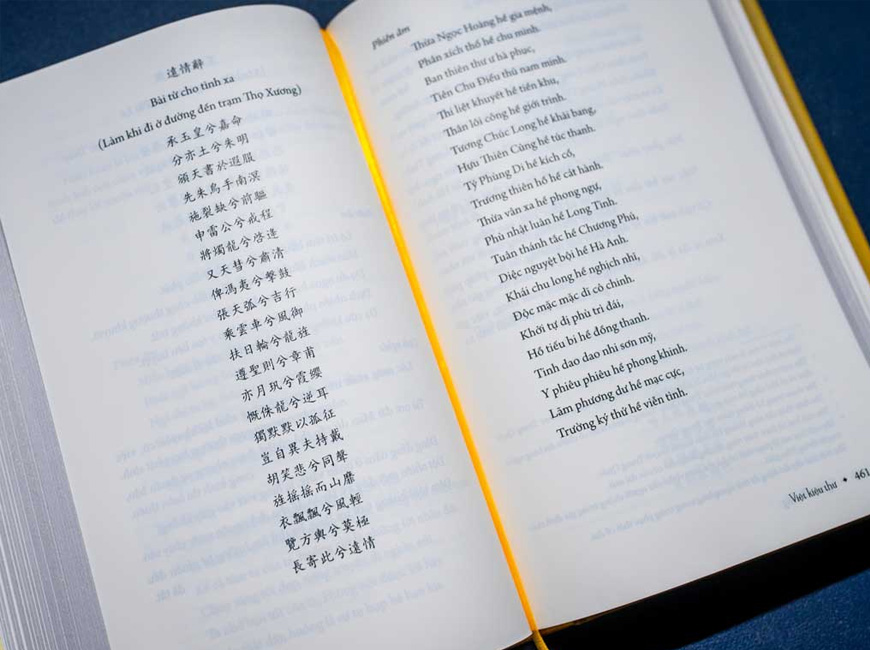 遠情辭
Bài từ cho tình xa
(Làm khi đi ở đường đến trạm Thọ Xương)
承玉皇兮嘉命
分亦土兮朱明
頒天書於遐服
先朱鳥乎南溟
施裂缺兮前驅
申雷公兮戒程
將燭龍兮啓途
又天彗兮肅清
俾馮夷兮擊鼓
張天弧兮吉行
乘雲車兮風御
扶日輪兮龍旌
遵聖則兮章甫
亦月珮兮霞纓
慨侏龍兮逆耳
獨默默以孤征
豈自異夫持戴
胡笑悲兮同聲
旌搖搖而山靡
衣飄飄兮風輕
覽方輿兮莫極
長寄此兮遠情
Phiên âm
Thừa Ngọc Hoàng hề gia mệnh,
Phân xích thổ hề chu minh.
Ban thiên thư ư hà phục,
Tiên Chu Điểu thủ nam minh.
Thi liệt khuyết hề tiền khu,
Thân lôi công hề giới trình.
Tương Chúc Long hề khải bang,
Hựu Thiên Cùng hề túc thanh.
Tỷ Phùng Di hề kích cổ,
Trương thiên hồ hề cát hành.
Thừa vân xa hề phong ngự,
Phù nhật luân hề Long Tinh.
Tuân thánh tắc hề Chương Phủ,
Diệc nguyệt bội hề Hà Anh.
Khái chu long hề nghịch nhĩ,
Độc mặc mặc dĩ cô chinh.
Khởi tự dị phù trì đái,
Hồ tiếu bi hề đồng thanh.
Tinh dao dao nhi sơn mỹ,
Y phiêu phiêu hề phong khinh.
Lãm phương dư hề mạc cực,
Trường ký thử hề viễn tình.
Việt kiệu thư • 461